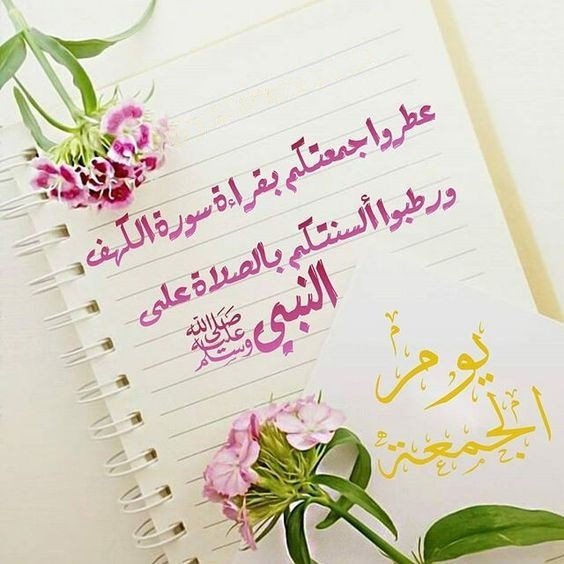 عطروا جمعتكم بقراءة سورة الكهف
ورطبوا ألسنتكم بالصلاة على
النبي صلى الله عليه وسلم
يوم
الجمعة